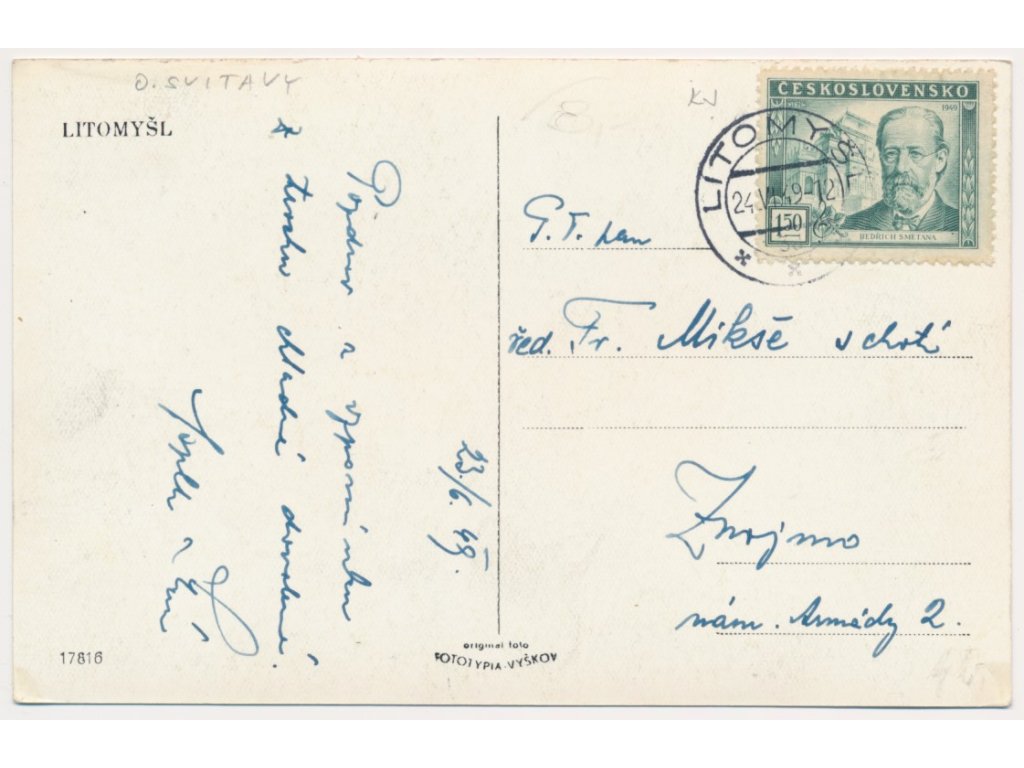 O. SVITAVY
LITOMYŠL
Pozdrav a vzpomínku
z trochu chladné dovolené.
23./6. 49.
17816
original foto
FOTOTYPIA-VYŠKOV
KV
ČESKOSLOVENSKO
1949
1.50
BEDŘICH SMETANA
LITOMYŠL
24.VI.49-12
C. T. pan
řed. Fr. Mikše s chotí
Znojmo
nám. Armády 2.